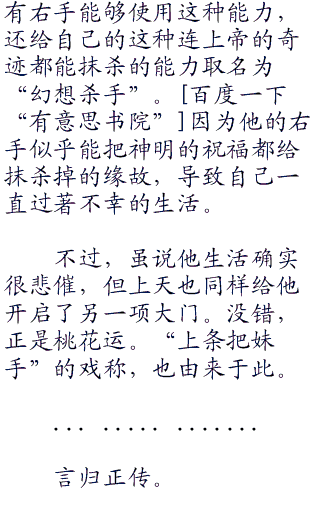 有右手能够使用这种能力，
还给自己的这种连上帝的奇
迹都能抹杀的能力取名为
“幻想杀手”。[百度一下
“有意思书院”]因为他的右
手似乎能把神明的祝福都给
抹杀掉的缘故，导致自己一
直过著不幸的生活。
不过，虽说他生活确实
很悲催，但上天也同样给他
开启了另一项大门。没错，
正是桃花运。“上条把妹
手”的戏称，也由来于此。
... ..... .......
言归正传。